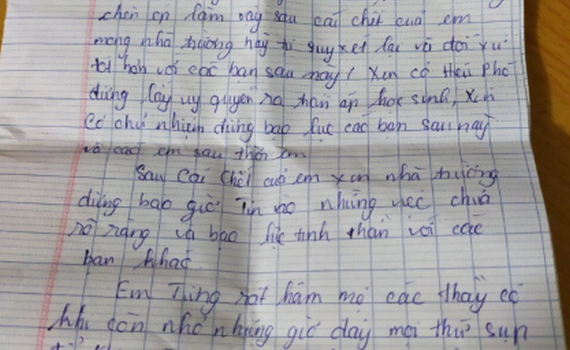 chọn én lầm này sau cái chết của em
mong nhà trường hãy tự suy xét lại và đối xử
tốt hơn với các bạn sau này! Xin cô Hiệu Phó
đừng lấy uy quyền ra đàn áp học sinh, xin
Cô chủ nhiệm đừng bạo lực các bạn sau này
và các em sau thôi em
Sau Cái Chết của em xin nhà trường
đừng bao giờ Tin vào những việc chưa
rõ ràng và bạo lực tinh thần với các
bạn khác.
Em Từng rất hâm mộ các thầy cô
khi còn nhỏ nhưng giờ đây mọi thứ sụp